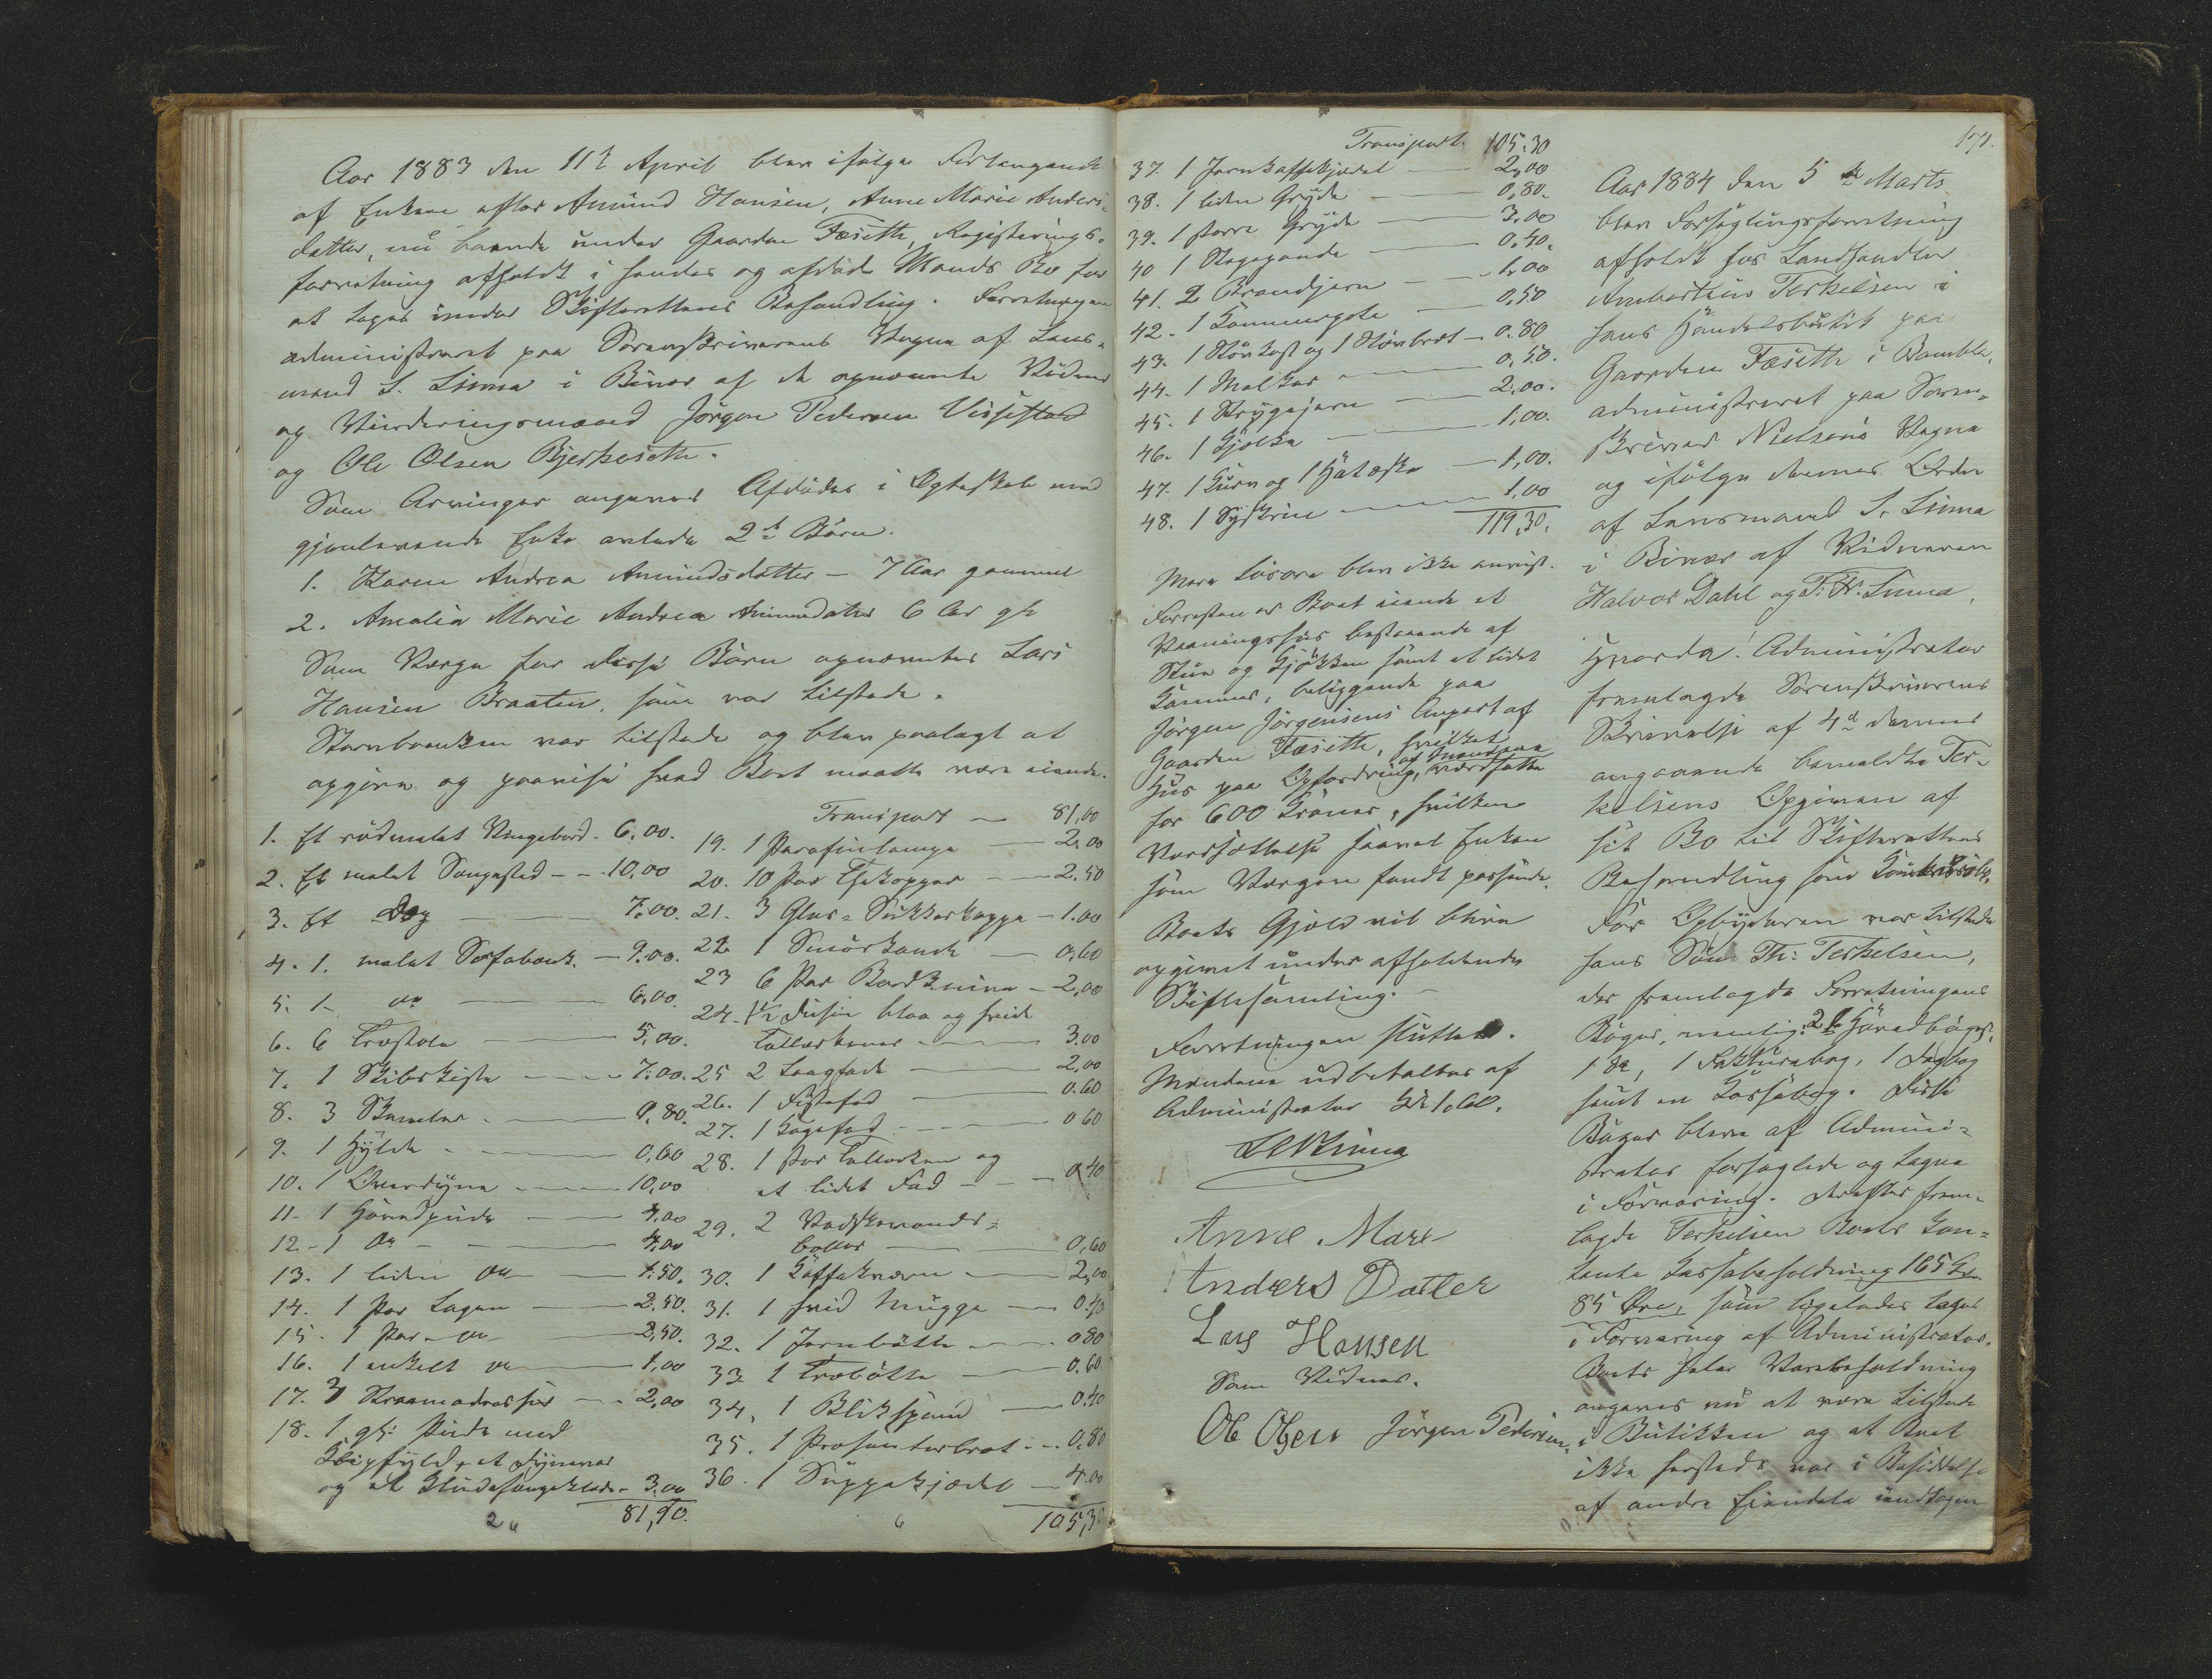 Aar 1883 den 11te April blev ifølge Forlangende
af Enken efter Amund Hansen, Anne Marie Anders-
datter, nu boende under Gaarden Fæseth, Registrerings-
forretning afholdt i hendes og afdøde Mands Bo for
at tages under Skifterettens Behandling. Forretningen
administreret paa Sorenskriverens Vegne af Lens-
mand S. Linna i Bivær af de opnævnte Vidner
og Vurderingsmænd Jørgen Pedersen Vissestad
og Ole Olsen Bjerkeseth.
Som Arvinger angaves Afdødes i Ægteskab med
gjenlevende Enke avlede 2de Børn.
1. Karen Andrea Amundsdatter – 7 Aar gammel
2. Amalia Marie Andrea Amundsdatter 6 Aar gl
Som Værge for disse Børn opnævntes Lars
Hansen Braaten, som var tilstede.
Stervboenken var tilstede og blev paalagt at
opgive og paavise hvad Boet maatte være eiende.
1. Et rødmalet Vingebord. 6,00.
2. Et malet Sengested - - 10,00
3. Et do 7,00.
4. 1. malet Sofabænk. - 9.00.
5. 1- do 6,00.
6. 6 Træstole 5,00.
7. 1 Skibskiste 7.00.
8. 3 Skamler 0,80.
9. 1 Hylde 0,60
10. 1 Overdyne 10,00
11- 1 Hovedpude 4,00
12- 1 do 4,00
13. 1 liden do 1.50.
14. 1 Par Lagen 2.50.
15- 1 Par do 2,50.
16. 1 enkelt do 1,00
17. 3 Straamadrasser 2,00
18. 1 gl: Pude med
og et Kludesengeklæde - 3.00
81,90.
Transport — 81,90
19. 1 Parafinlampe 2,00
20. 10 Par Thekopper 2.50
21. 3 Glas- Sukkerkoppe - 1.00
22 1 Smørkande 0,60
23 6 Par Bordknive - 2,00
24. 1½ Dusin blaa og hvide
Tallerkener 3.00
25 2 Langfade 2,00
26. 1 Fiskefad 0.60
27. 1 Kagefad 0 60
28. 1 Par Tallerken og
et lidet Fad - - - 0,40
29. 2 Vadskevands-
boller 0,60
30. 1 Kaffekværn 2,00
31. 1 hvid Mugge 0.40
32. 1 Jernbøtte 0 80
33. 1 Træbøtte 0.60
34. 1 Blikspand 0.40
35. 1 Præsenterbræt - - 0.80
36. 1 Suppekjedel - 4.00
105,30
Transport. 105,30
37. 1 Jernkaffekjedel 2,00
38. 1 liden Gryde 0,80.
39. 1 større Gryde 3,00
40 1 Stegepande 0,40.
41. 2 Brandjern 1,00
42. 1 0,50
43. 1 Støvkost og 1 Støvbræt - 0.80
44. 1 0,50.
45. 1 Strygejern 2,00.
46. 1 Kjelke 1,00.
47. 1 Kurv og 1 Hateske 1,00.
48. 1 Syskrin 1,00
119,30.
Mere Løsøre blev ikke anvist.
Forresten er Boet eiende et
Vaaningshus bestaaende af
Stue og Kjøkken samt et lidet
Kammer, beliggende paa
Jørgen Jørgensens Anpart af
Gaarden Fæseth, hvilket
Hus paa Opfordring af Mændene værdsattes
for 600 Kroner, hvilken
Værdsættelse saavel Enken
som Værgen fandt passende.
Boets Gjeld vil blive
opgivet under afholdende
Skiftesamling. –
Forretningen sluttet.
Mændene udbetaltes af
Administrator Kr 1,60.
S. Linna
Anne Mare
Anders Datter
Lars Hansen
Som Vidner.
Ole Olsen Jörgen Pedersen.
171.
Aar 1884 den 5te Marts
blev Forseglingsforretning
afholdt hos Landhandler
Ambortius Terkelsen i
hans Handelsbutik paa
Gaarden Fæseth i Bamble,
administreret paa Soren-
skriver Nielsens Vegne
og ifølge dennes Ordre
af Lensmand S. Linna
i Bivær af Vidnerne
Halvor Dahl og T. H. Linna.
Hvorda! Administrator
fremlagde Sorenskriverens
Skrivelse af 4de dennes
angaaende bemeldte Ter-
kelsens Opgivelse af
sit Bo til Skifterettens
Behandling som
For Opbyderen var tilstede
hans Søn Th: Terkelsen,
der fremlagde Forretningens
Bøger, nemlig: 2de Hovedbøger,
1 do, 1 Fakturabog, 1 Dagbog
samt en Kassabog. Disse
Bøger bleve af Admini-
strator forseglede og tagne
i Forvaring. Derefter frem-
lagde Terkelsen Boets Kon-
tante Kassabeholdning 165 Kr
85 Øre, som ligeledes toges
i Forvaring af Administrator.
Boets hele Varebeholdning
angaves nu at være tilstede
i Butikken og at Boet
ikke forsteds var i Besiddelse
af andre Eiendele undtagen